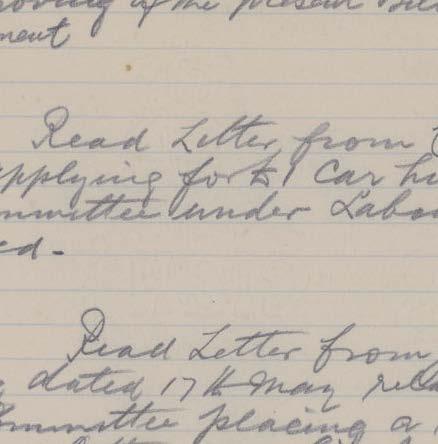 of the present
ment
Read Letter from
applying for 1 Car
mmittee under Labo
ed.-
Read Letter from
dated 17th May rela
ommittee placing a